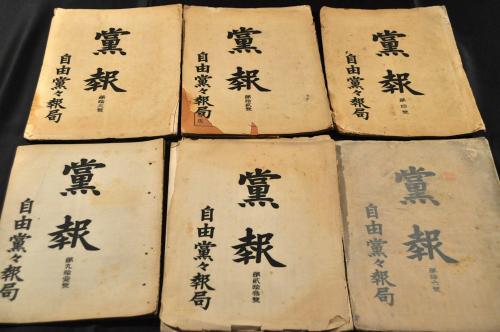 黨報
自由黨々報局
黨報
第拾貳號
自由黨々報局
黨報
第拾號
自由黨々報局
黨報
第九拾壹號
自由黨々報局
黨報
自由黨々報局
黨報
第拾六號
自由黨々報局